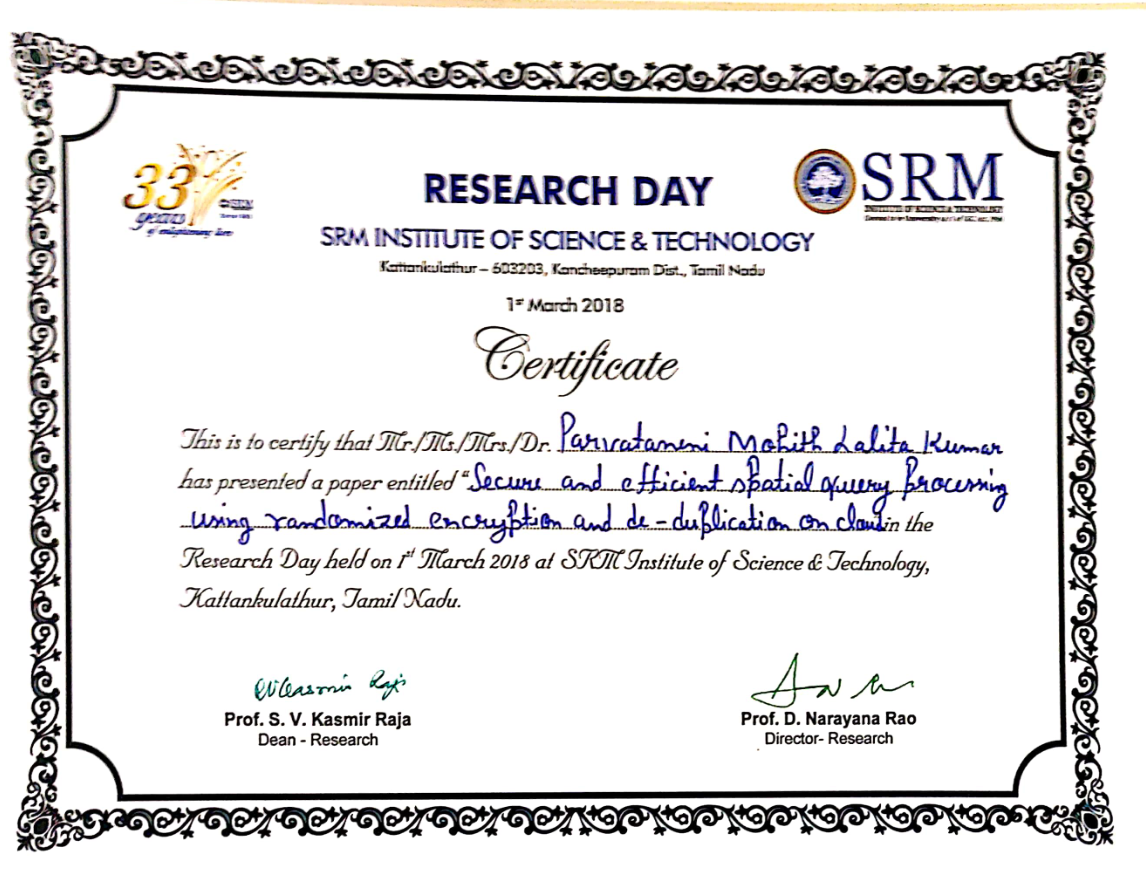 33
years
SRM
of enlightening lives
RESEARCH DAY
SRM
INSTITUTE OF SCIENCE & TECHNOLOGY
SRM INSTITUTE OF SCIENCE & TECHNOLOGY
Kattankulathur – 603203, Kancheepuram Dist., Tamil Nadu
1st March 2018
Certificate
This is to certify that Mr./Ms./Mrs./Dr. Parvataneni Mohith Lalita Kumar
has presented a paper entitled "Secure and efficient spatial query processing
using randomized encryption and de-duplication on cloud in the
Research Day held on 1st March 2018 at SRM Institute of Science & Technology,
Kattankulathur, Tamil Nadu.
Prof. S. V. Kasmir Raja
Dean - Research
Prof. D. Narayana Rao
Director- Research